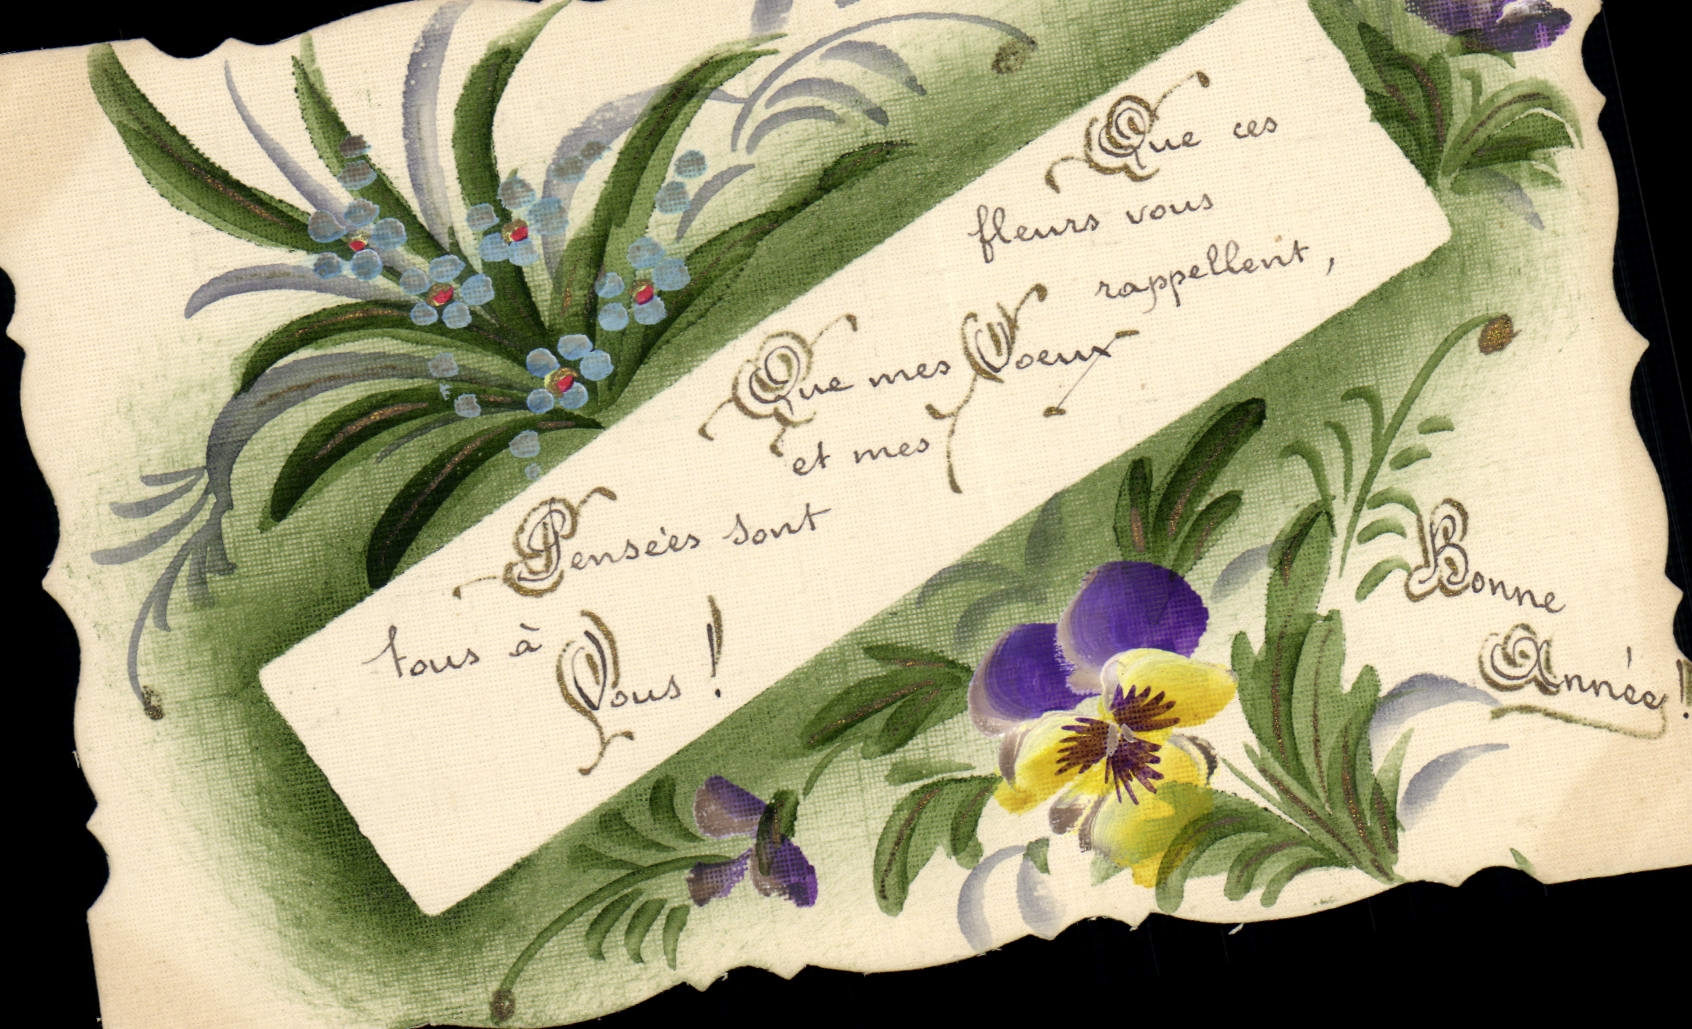 Que ces
fleurs vous
rappellent,
Que mes Voeux
et mes
Pensées sont
tous à
Vous !
Bonne
Année !